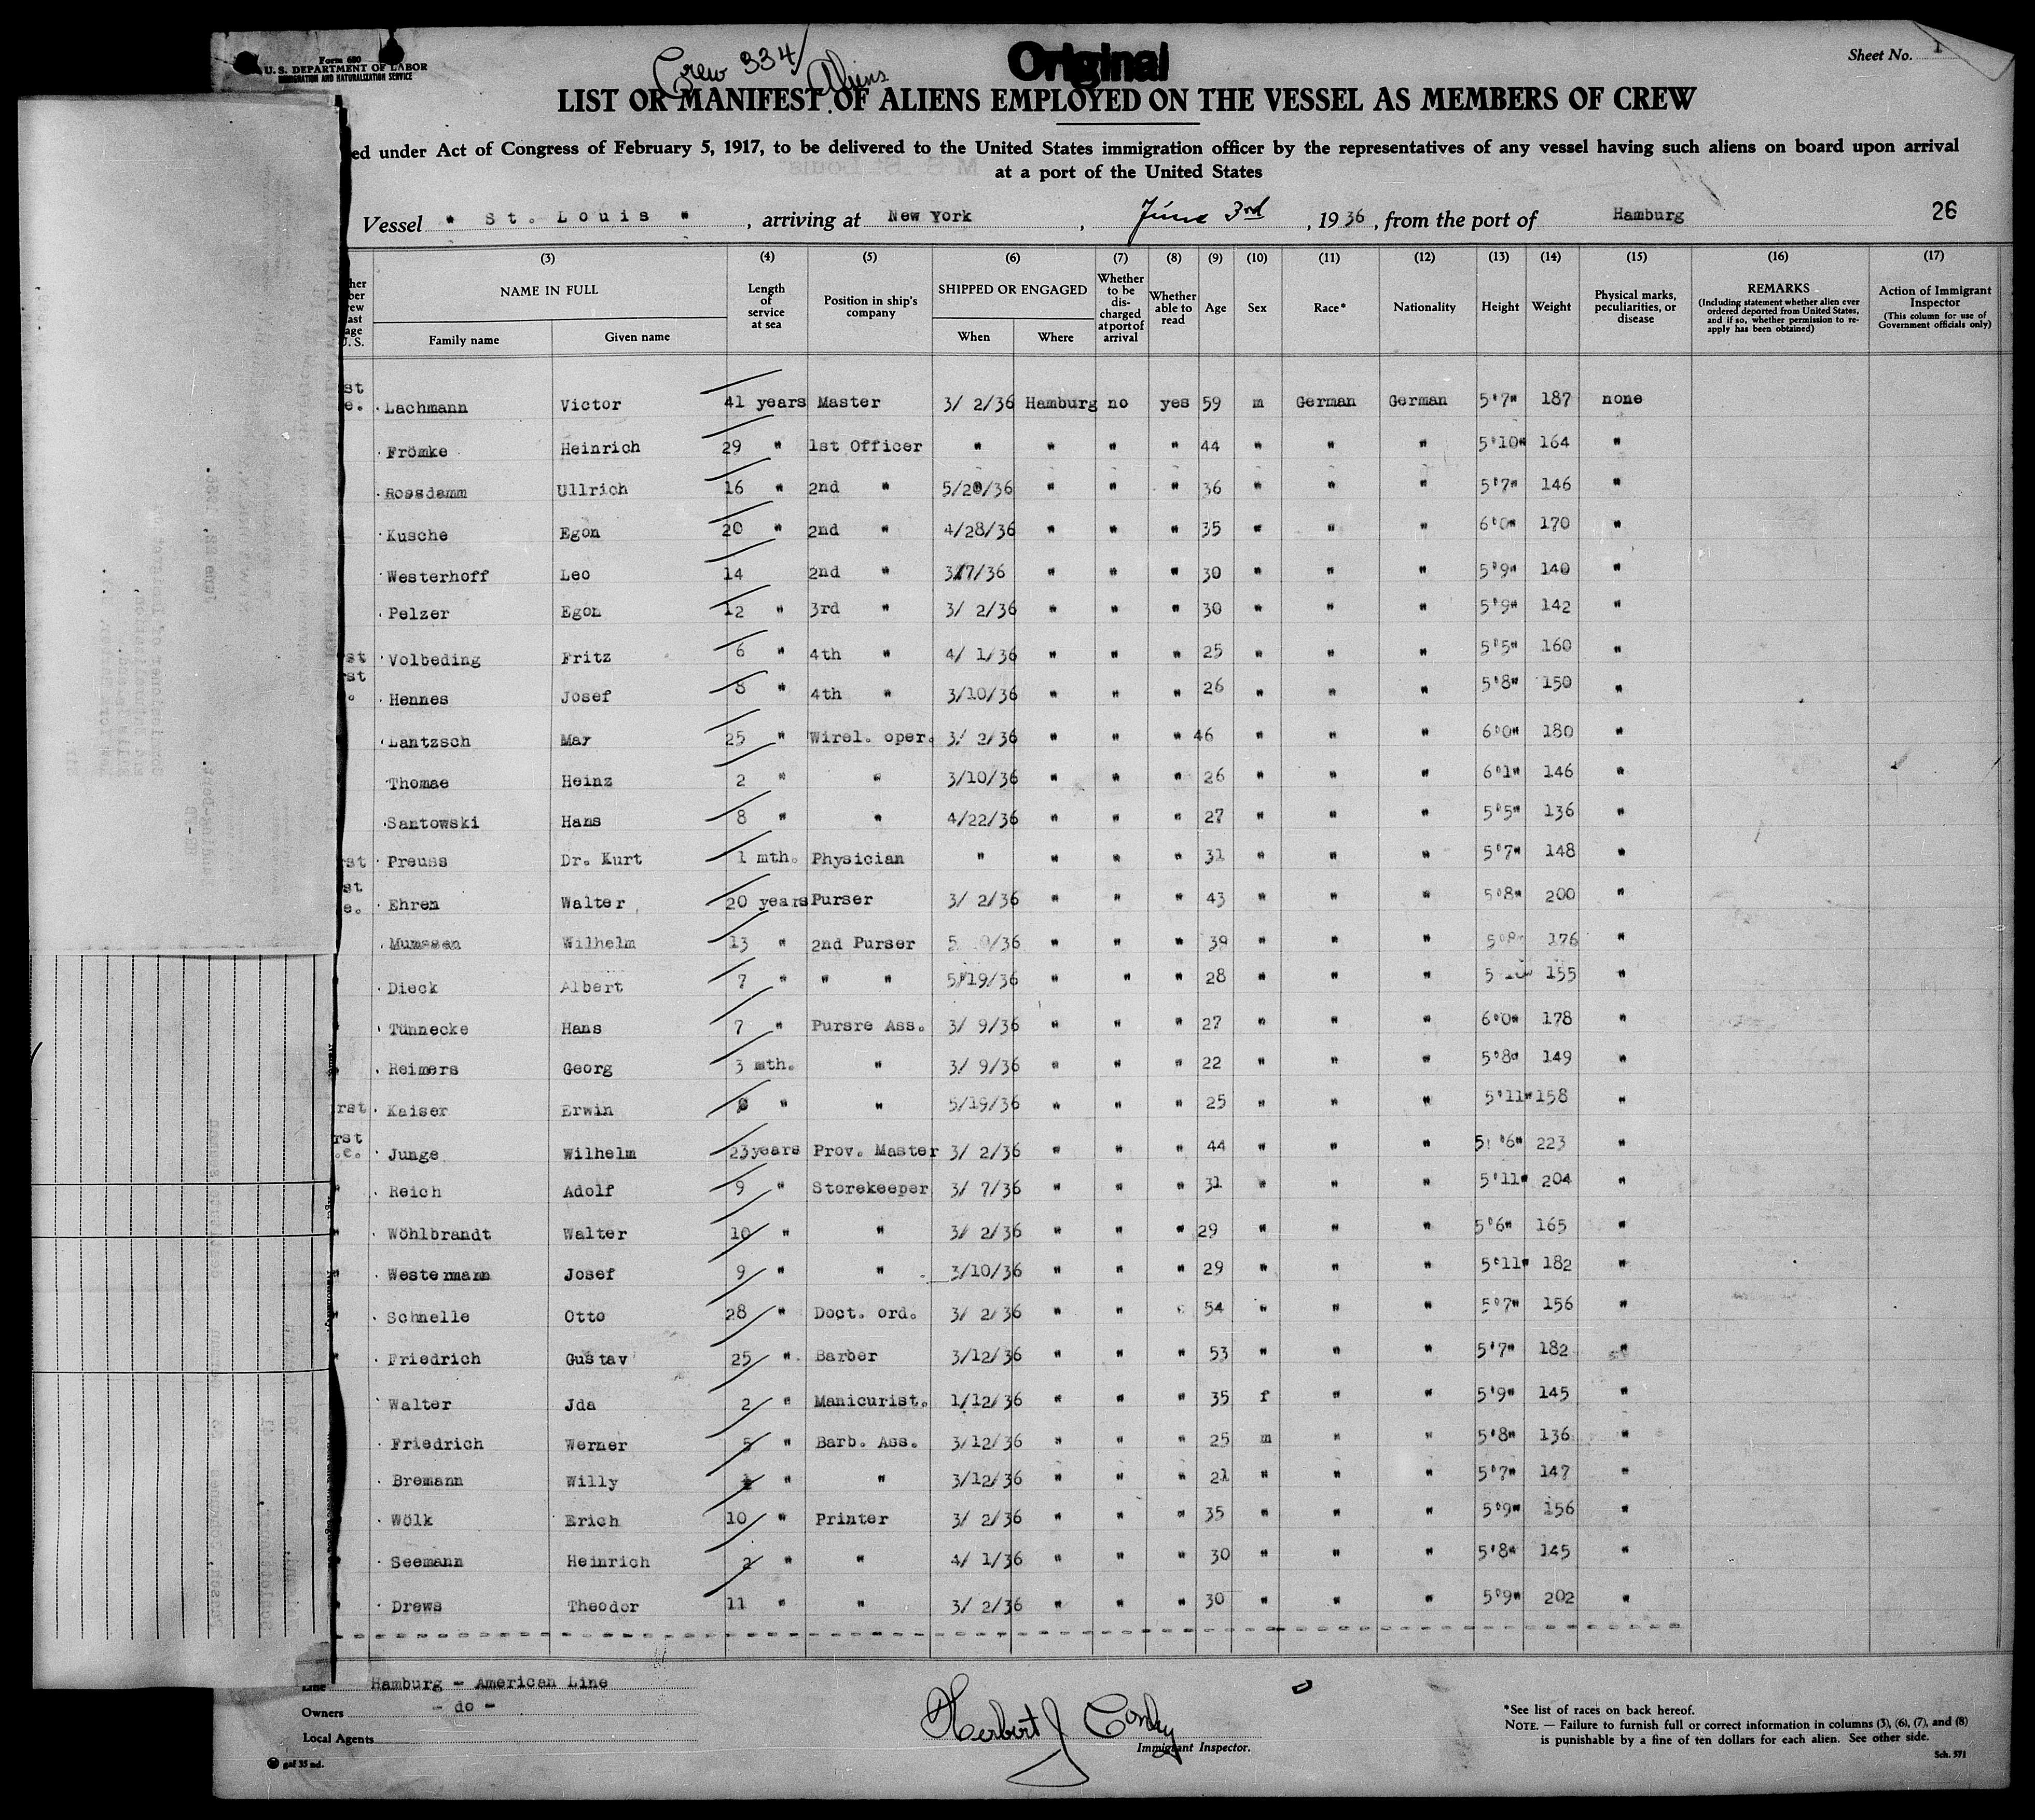 Form 680
U. S. DEPARTMENT OF LABOR
IMMIGRATION AND NATURALIZATION SERVICE
Crew 334/ Aliens
Original
Sheet No. 1
LIST OR MANIFEST OF ALIENS EMPLOYED ON THE VESSEL AS MEMBERS OF CREW
ed under Act of Congress of February 5, 1917, to be delivered to the United States immigration officer by the representatives of any vessel having such aliens on board upon arrival
at a port of the United States
Vessel " St. Louis ", arriving at New York, June 3rd, 1936, from the port of Hamburg 26
(3) (4) (5) (6) (7) (8) (9) (10) (11) (12) (13) (14) (15) (16) (17)
NAME IN FULL
Family name Given name
Length of service at sea
Position in ship's company
SHIPPED OR ENGAGED
When Where
Whether to be discharged at port of arrival
Whether able to read
Age Sex Race* Nationality Height Weight
Physical marks, peculiarities, or disease
REMARKS
(Including statement whether alien ever ordered deported from United States, and if so, whether permission to re-apply has been obtained)
Action of Immigrant Inspector
(This column for use of Government officials only)
Lachmann Victor 41 years Master 3/ 2/36 Hamburg no yes 59 m German German 5'7" 187 none
Frömke Heinrich 29 " 1st Officer " " " " 44 " " " 5'10" 164 "
Rossdamm Ullrich 16 " 2nd " 5/20/36 " " " 36 " " " 5'7" 146 "
Kusche Egon 20 " 2nd " 4/28/36 " " " 35 " " " 6'0" 170 "
Westerhoff Leo 14 2nd " 3/7/36 " " " 30 " " " 5'9" 140 "
Pelzer Egon 12 " 3rd " 3/ 2/36 " " " 30 " " " 5'9" 142 "
Volbeding Fritz 6 " 4th " 4/ 1/36 " " " 25 " " " 5'5" 160 "
Hennes Josef 8 " 4th " 3/10/36 " " " 26 " " " 5'8" 150 "
Lantzsch May 25 " Wirel. oper. 3/ 2/36 " " " 46 " " " 6'0" 180 "
Thomae Heinz 2 " " 3/10/36 " " " 26 " " " 6'1" 146 "
Santowski Hans 8 " " 4/22/36 " " " 27 " " " 5'5" 136 "
Preuss Dr. Kurt 1 mth. Physician " " " " 31 " " " 5'7" 148 "
Ehren Walter 20 years Purser 3/ 2/36 " " " 43 " " " 5'8" 200 "
Mumssen Wilhelm 13 " 2nd Purser " " " 39 " " " 176 "
Dieck Albert 7 " " " 5/19/36 " " " 28 " " " 5'10" 155 "
Tünnecke Hans 7 " Pursre Ass. 3/ 9/36 " " " 27 " " " 6'0" 178 "
Reimers Georg 3 mth. " 3/ 9/36 " " " 22 " " " 5'8" 149 "
Kaiser Erwin " " 5/19/36 " " " 25 " " " 5'11" 158 "
Junge Wilhelm 23years Prov. Master 3/ 2/36 " " " 44 " " " 5'6" 223 "
Reich Adolf 9 " Storekeeper 3/ 7/36 " " " 31 " " " 5'11" 204 "
Wöhlbrandt Walter 10 " " 3/ 2/36 " " " 29 " " " 5'6" 165 "
Westermann Josef 9 " " 3/10/36 " " " 29 " " " 5'11" 182 "
Schnelle Otto 28 " Doct. ord. 3/ 2/36 " " " 54 " " " 5'7" 156 "
Friedrich Gustav 25 " Barber 3/12/36 " " " 53 " " " 5'7" 182 "
Walter Jda 2 " Manicurist. 1/12/36 " " " 35 f " " 5'9" 145 "
Friedrich Werner 5 " Barb. Ass. 3/12/36 " " " 25 m " " 5'8" 136 "
Bremann Willy " " 3/12/36 " " " 21 " " " 5'7" 147 "
Wölk Erich 10 " Printer 3/ 2/36 " " " 35 " " " 5'9" 156 "
Seemann Heinrich 2 " " 4/ 1/36 " " " 30 " " " 5'8" 145 "
Drews Theodor 11 " " 3/ 2/36 " " " 30 " " " 5'9" 202 "
Line Hamburg - American Line
Owners - do -
Local Agents
Herbert J Conley
Immigrant Inspector.
*See list of races on back hereof.
NOTE. — Failure to furnish full or correct information in columns (3), (6), (7), and (8)
is punishable by a fine of ten dollars for each alien. See other side.
gaf 35 nd.
Sch. 571